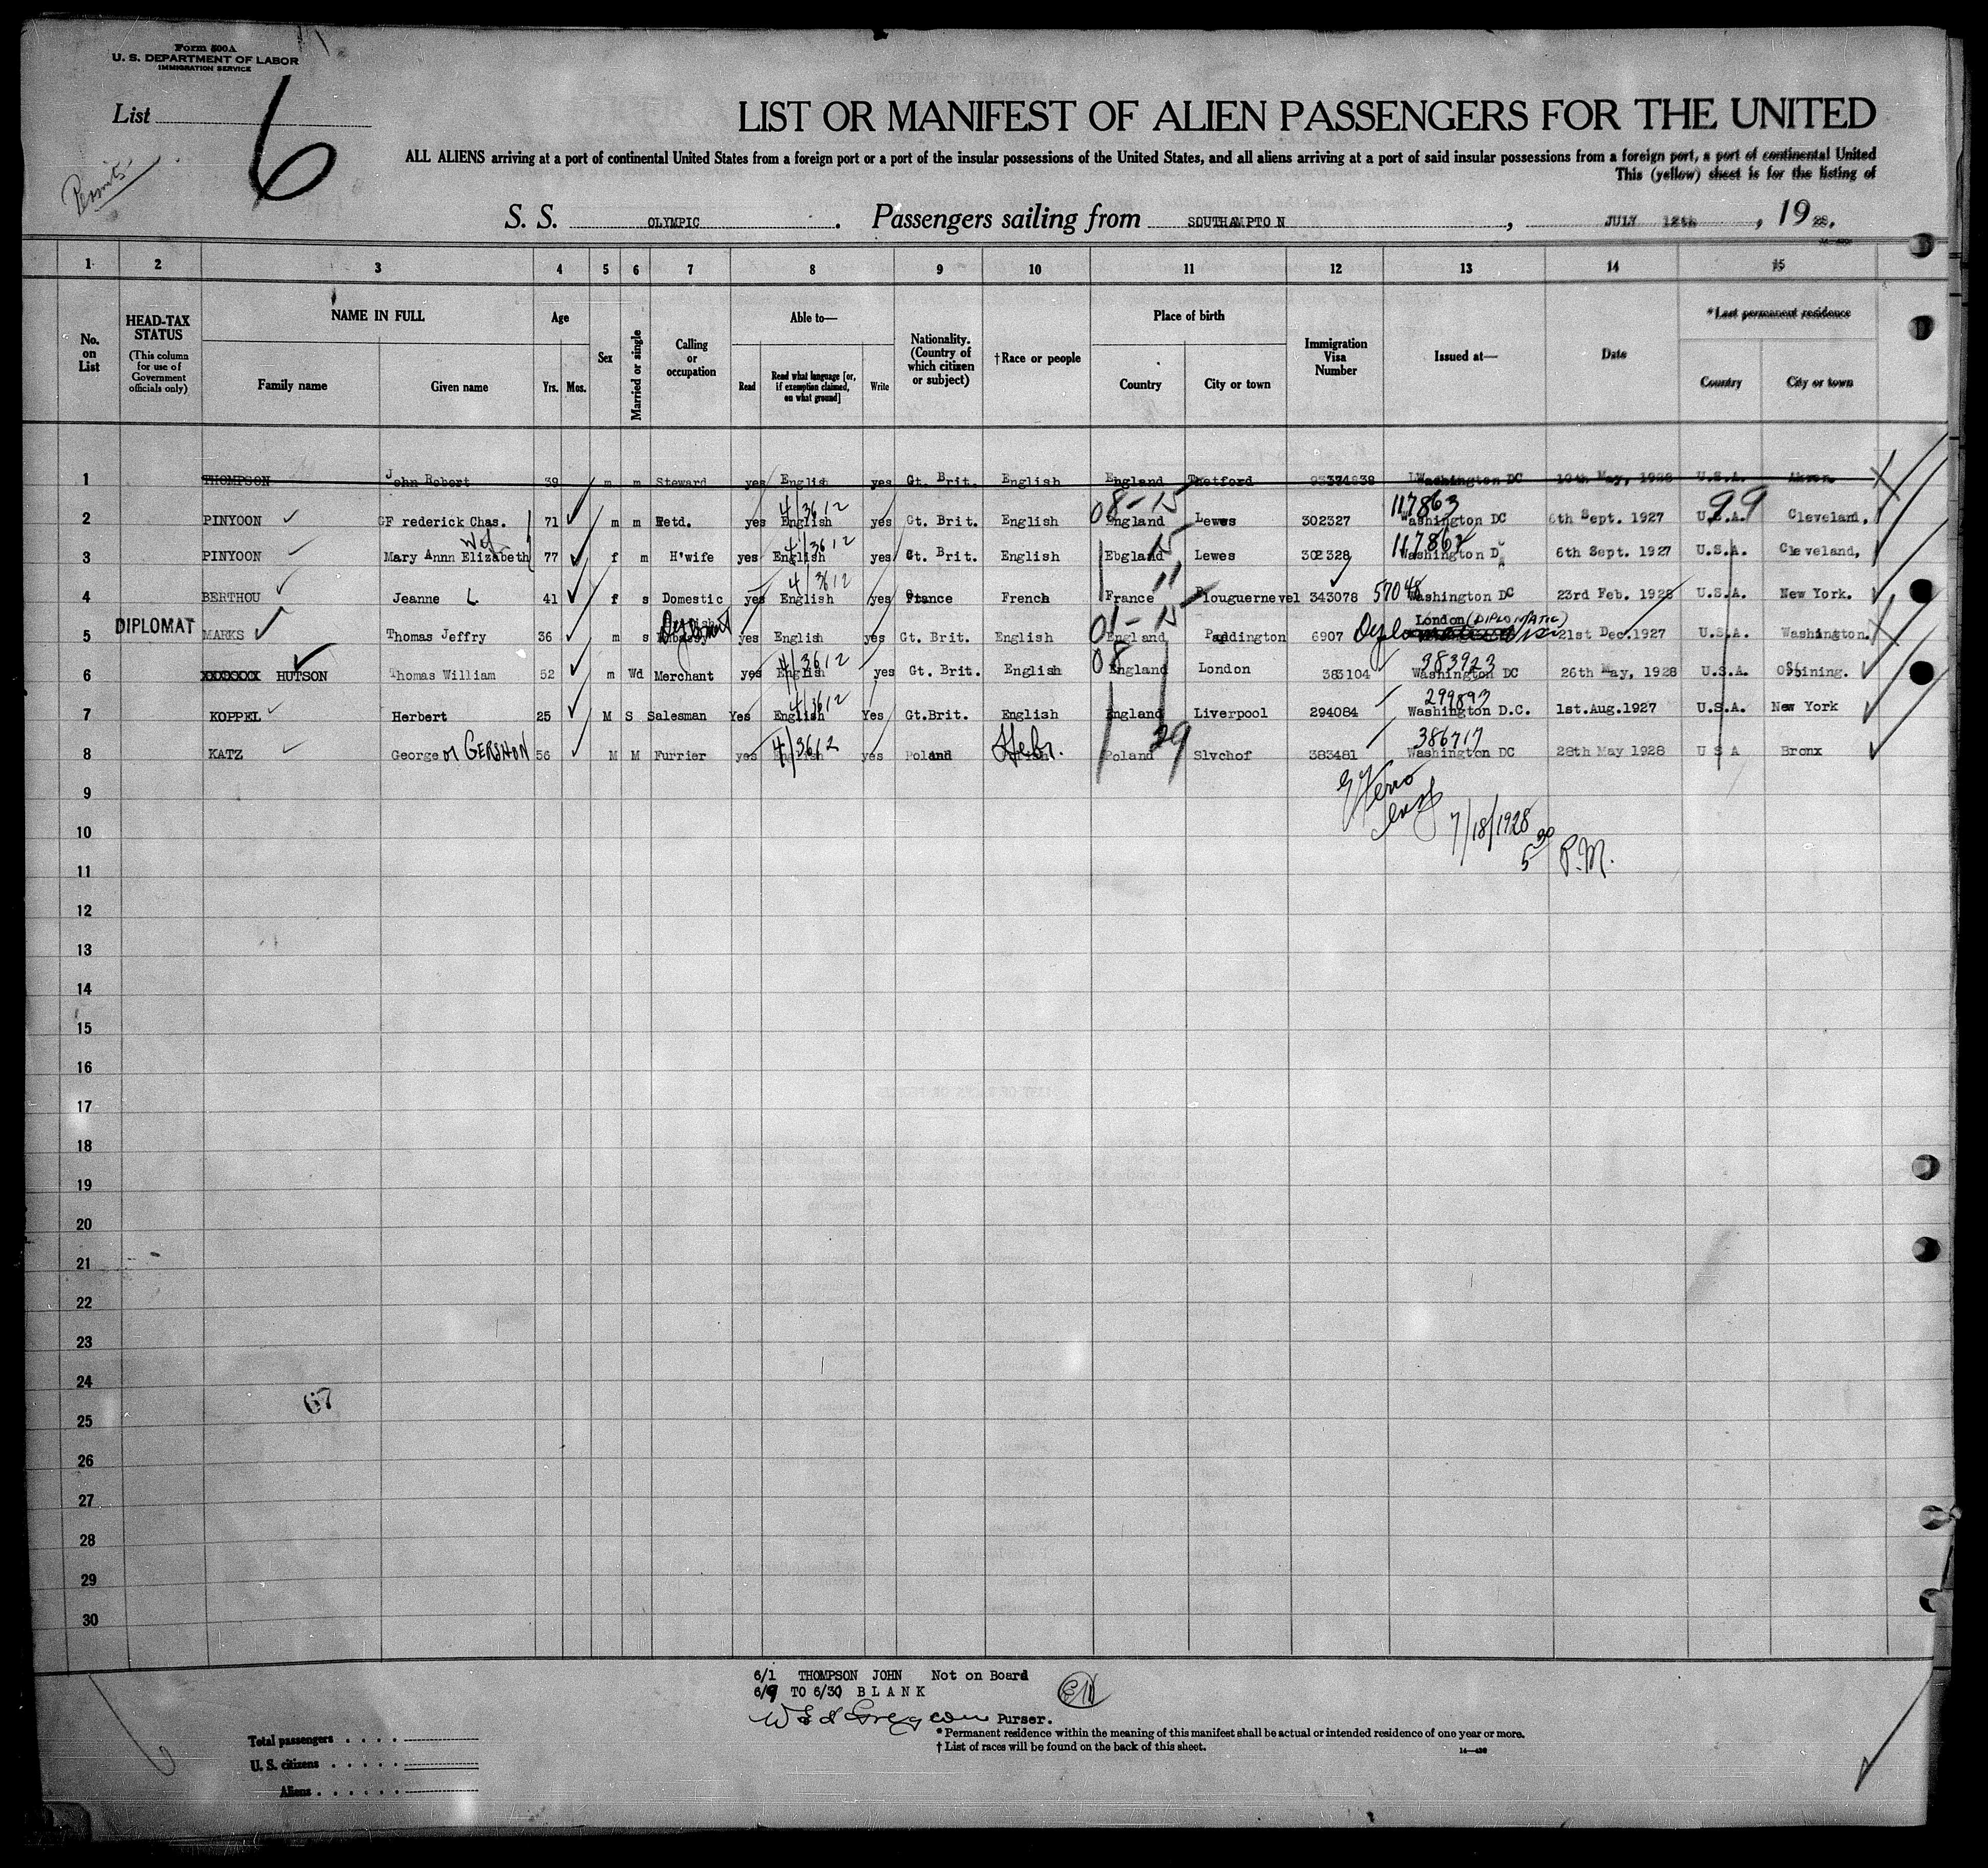 Form 500A
U. S. DEPARTMENT OF LABOR
IMMIGRATION SERVICE
List 6
Permits
LIST OR MANIFEST OF ALIEN PASSENGERS FOR THE UNITED
ALL ALIENS arriving at a port of continental United States from a foreign port or a port of the insular possessions of the United States, and all aliens arriving at a port of said insular possessions from a foreign port, a port of continental United
This (yellow) sheet is for the listing of
S. S. OLYMPIC. Passengers sailing from SOUTHAMPTO N, JULY 12th, 19 28.
1 2 3 4 5 6 7 8 9 10 11 12 13 14 15
No. on List
HEAD-TAX STATUS (This column for use of Government officials only)
NAME IN FULL Family name Given name
Age Yrs. Mos.
Sex
Married or single
Calling or occupation
Able to— Read Read what language [or, if exemption claimed, on what ground] Write
Nationality. (Country of which citizen or subject)
†Race or people
Place of birth Country City or town
Immigration Visa Number
Issued at—
Date
*Last permanent residence Country City or town
1 THOMPSON John Robert 39 m m Steward yes English yes Gt. Brit. English England Thetford Washington DC 10th May, 1928 U.S.A. Akron.
2 PINYOON GF rederick Chas. 71 m m Retd. yes English 4/3612 yes Gt. Brit. English England 08-15 Lewes 302327 117863 Washington DC 6th Sept. 1927 U.S.A. 99 Cleveland.
3 PINYOON Mary Annn Elizabeth Wf 77 f m H'wife yes English 4/3612 yes Gt. Brit. English Ebgland 15 Lewes 302328 117862 Washington D 6th Sept. 1927 U.S.A. Cleveland,
4 BERTHOU Jeanne L 41 f s Domestic yes English 4/3612 yes France French France 11 Plouguernevel 343078 57048 Washington DC 23rd Feb. 1928 U.S.A. New York.
5 DIPLOMAT MARKS Thomas Jeffry 36 m s yes English yes Gt. Brit. English England 01-15 Paddington 6907 London (DIPLOMATIC) 21st Dec.1927 U.S.A. Washington.
6 XXXXXXX HUTSON Thomas William 52 m Wd Merchant yes English 4/3612 yes Gt. Brit. English England 08 London 383104 383923 Washington DC 26th May, 1928 U.S.A. Ossining.
7 KOPPEL Herbert 25 M S Salesman Yes English 4/3612 Yes Gt.Brit. English England Liverpool 294084 299893 Washington D.C. 1st.Aug.1927 U.S.A. New York
8 KATZ George or GERSHON 56 M M Furrier yes English 4/3612 yes Poland Hebr. Poland 29 Slvchof 383481 386717 Washington DC 28th May 1928 U S A Bronx
9
7/18/1928
10
5 30 P.M.
11
12
13
14
15
16
17
18
19
20
21
22
23
24
67
25
26
27
28
29
30
6/1 THOMPSON JOHN Not on Board
6/9 TO 6/30 B L A N K
Purser.
* Permanent residence within the meaning of this manifest shall be actual or intended residence of one year or more.
† List of races will be found on the back of this sheet.
14—430
Total passengers
U. S. citizens
Aliens